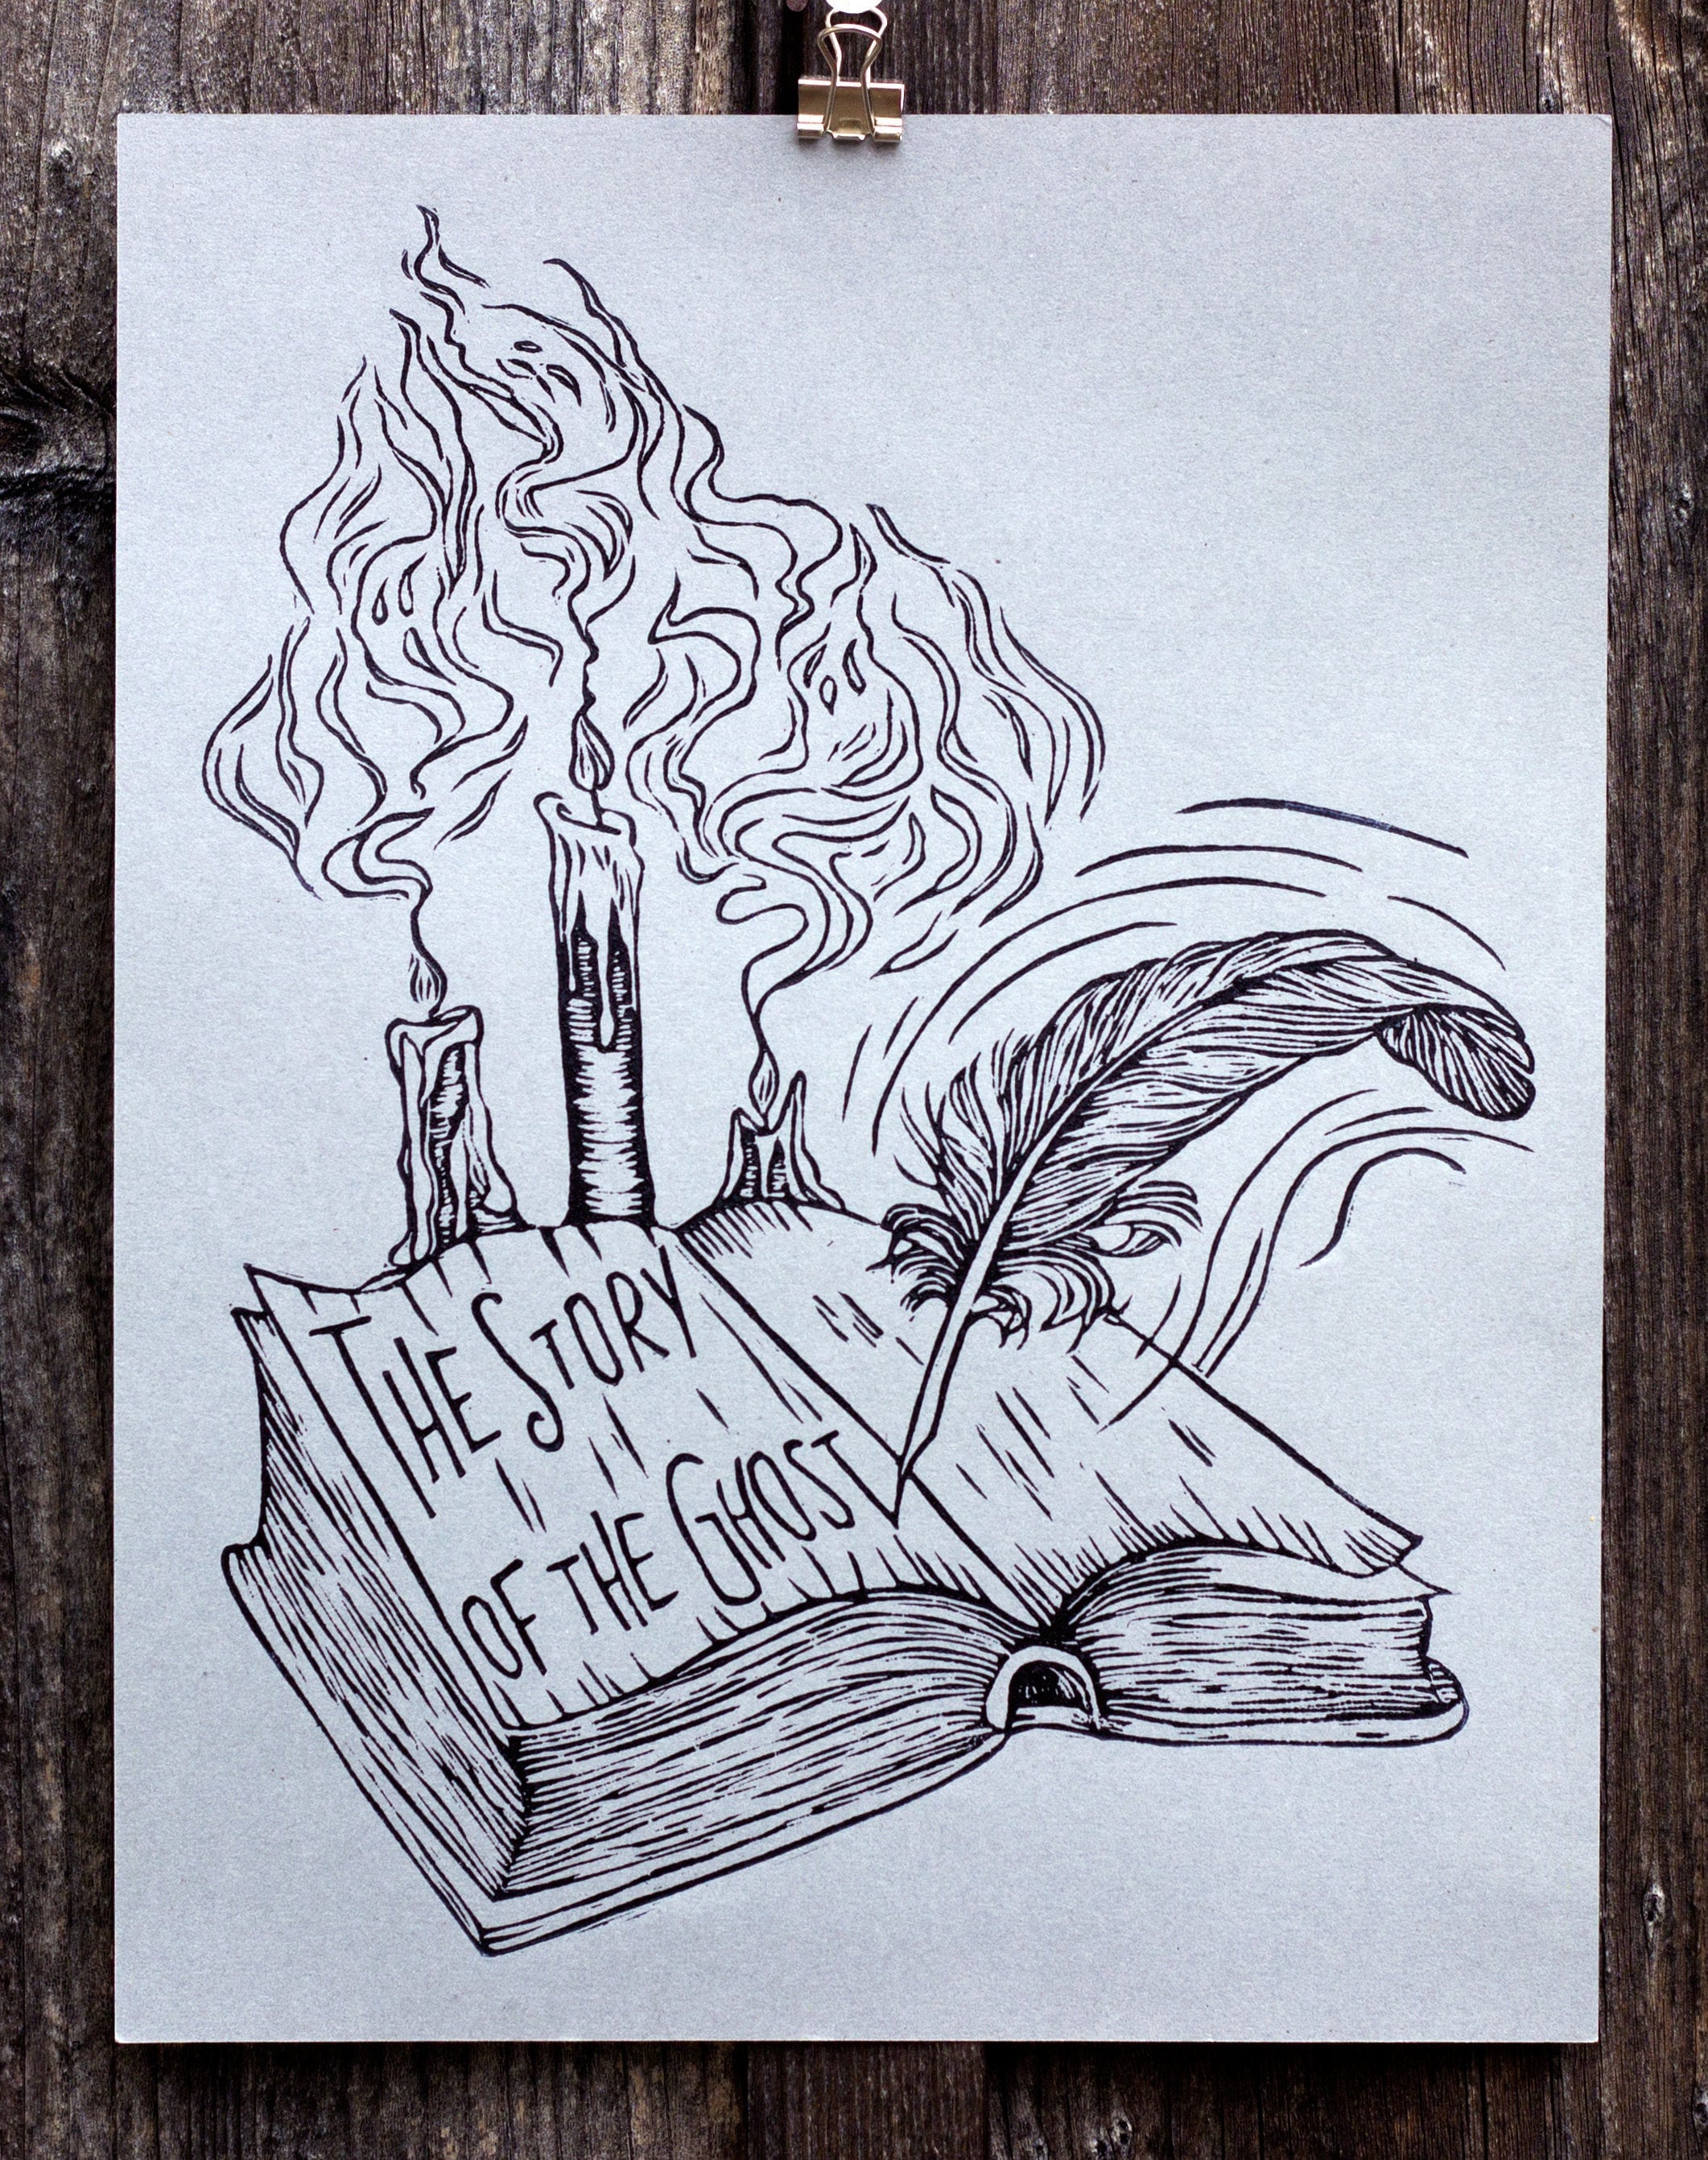 The Story
of the Ghost